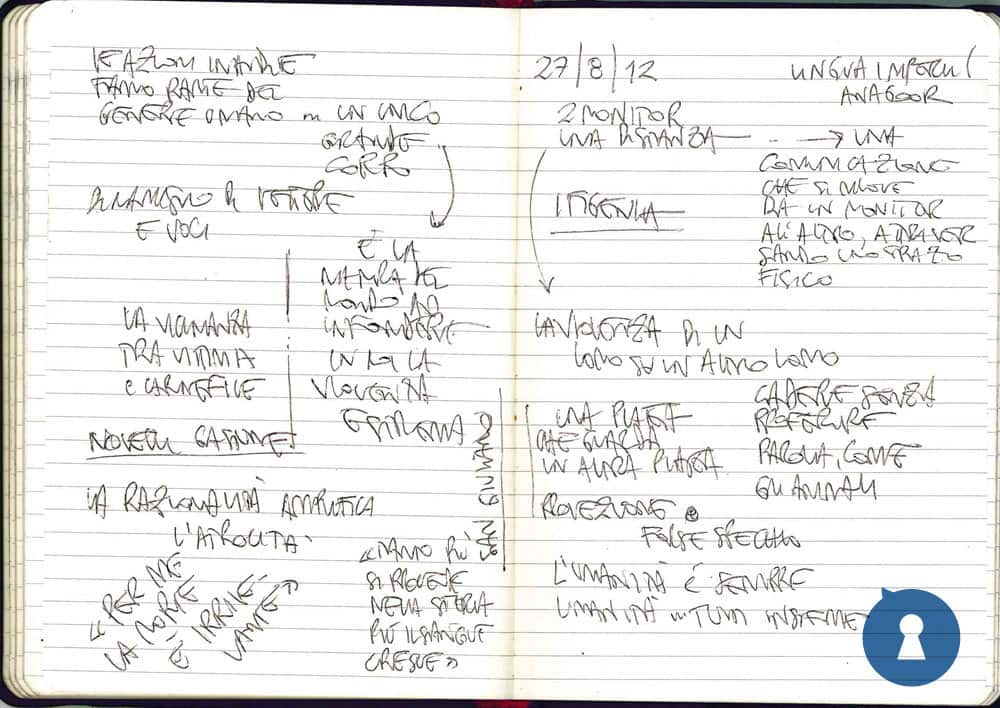 FANNO PARTE DEL
GENERE UMANO IN UN UNICO
GRANDE
CORPO
E VOCI
È LA
DEL
MONDO AD
INFONDERE
IN LUI LA
VIOLENZA
ESTREMA
LA VICINANZA
TRA VITTIMA
E CARNEFICE
LA RAZIONALITÀ AMPUTICA
L'ATROCITÀ
«PER ME
LA MORTE
È IRRILE-
VANTE»
«TANTO PIÙ
SI PROCEDE
NELLA STORIA
PIÙ IL SANGUE
CRESCE»
SAN GIULIANO
27/8/12
LINGUA IMPERII
ANAGOOR
2 MONITOR
UNA DISTANZA → UNA
COMUNICAZIONE
CHE SI MUOVE
DA UN MONITOR
ALL'ALTRO, ATTRAVER
SANDO UNO SPAZIO
FISICO
IFIGENIA
LA VIOLENZA DI UN
UOMO SU UN ALTRO UOMO
UNA PLATEA
CHE GUARDA
UN'ALTRA PLATEA
CADERE SENZA
PROFERIRE
PAROLA, COME
GLI ANIMALI
PROIEZIONE e
FORSE SPECCHIO
L'UMANITÀ È SEMPRE
UMANITÀ TUTTI INSIEME